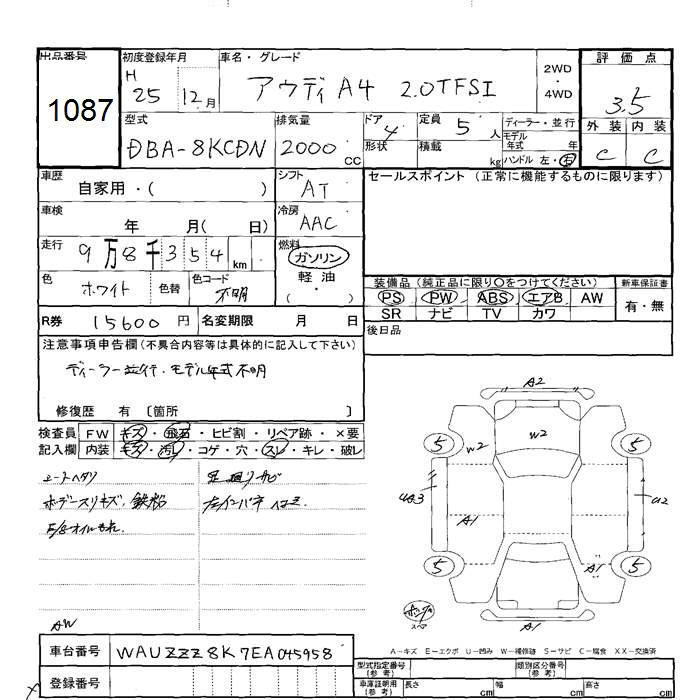 出品番号
1087
初度登録年月
H 25 12月
車名・グレード
アウディ A4 2.0TFSI
2WD
・
4WD
評価点
3.5
外装 内装
C C
型式
DBA-8KCDN
排気量
2000 CC
ドア
4
形状
定員 5 人
積載 kg
ディーラー・並行
モデル
年式 年
ハンドル 左・右
車歴
自家用・( )
シフト
AT
車検
年 月( 日)
冷房
AAC
走行
9万8千354 km
燃料
ガソリン
軽油
( ・ )
色
ホワイト
色替
色コード
不明
セールスポイント (正常に機能するものに限ります)
装備品(純正品に限り〇をつけてください)
PS PW ABS エアB AW
SR ナビ TV カワ
新車保証書
有・無
後日品
R券 15600 円
名変期限 月 日
注意事項申告欄(不具合内容等は具体的に記入して下さい)
ディーラー並行・モデル年式不明
修復歴 有 〔箇所 〕
検査員
記入欄
FW キズ・飛石・ヒビ割・リペア跡・×要
内装 キズ・汚レ・コゲ・穴・スレ・キレ・破レ
シートヘタリ
ボデースリキズ.
F/Bオイルもれ.
足廻りサビ
AW
A2
W2
W2
5
5
UA3
U2
A1
A1
5
5
A1
A-キズ E-エクボ U-凹み W-補修跡 S-サビ C-腐食 XX-交換済
車台番号
WAUZZZ8K7EA045958
登録番号
型式指定番号
(参考)
類別区分番号
(参考)
車庫証明用
(参考)
長さ cm
幅 cm
高さ cm